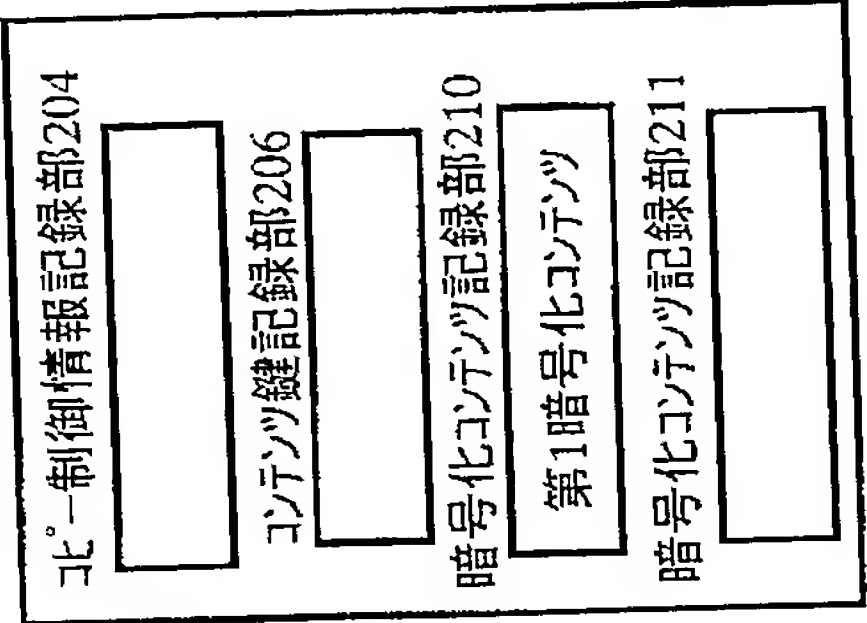 コピー制御情報記録部204
コンテンツ鍵記録部206
暗号化コンテンツ記録部210
第1暗号化コンテンツ
暗号化コンテンツ記録部211